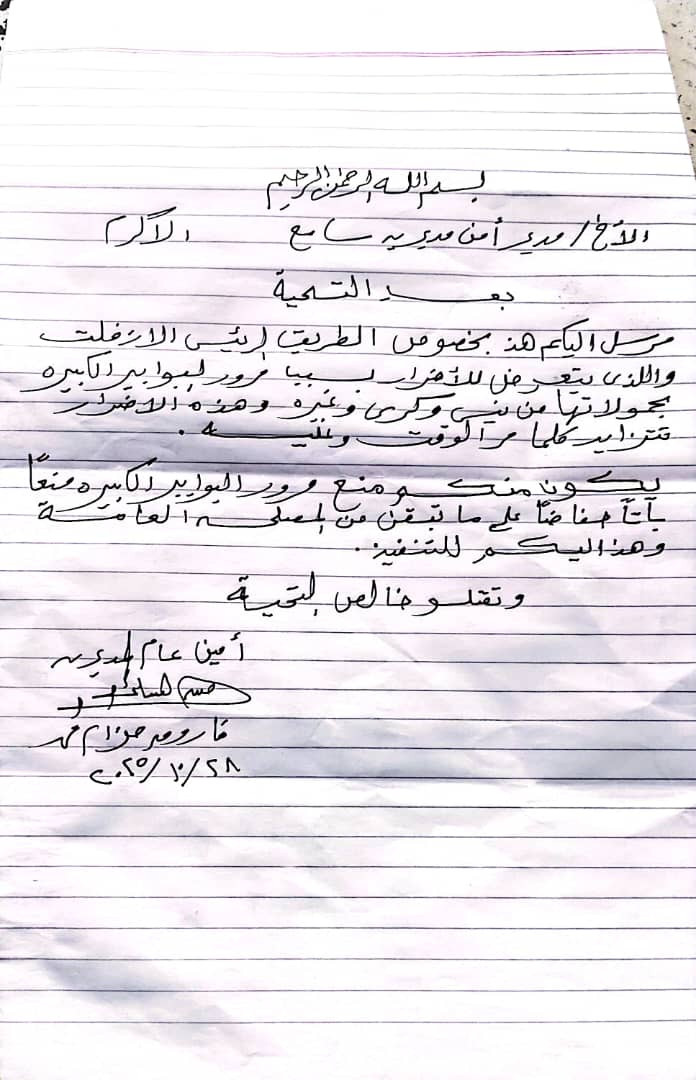 بسم الله الرحمن الرحيم
الأخ/ مدير أمن مديريه سامع الاكرم
بعد التحية
مرسل اليكم هذ بخصوص الطريق الرئيس الازفلت
واللذي يتعرض للأضرار بسبب مرور البوابير الكبيره
بحمولاتها من نيس وكري وغيره وهذه الاضرار
تتزايد كلما مر الوقت وعليه .
يكون منكم منع مرور البوابير الكبيره منعاً
باتاً حفاضاً على ما تبقى من المصلحه العامة
وهذا اليكم للتنفيذ.
وتقبلو خالص التحية
أمين عام المديريه
فاروق حزام
٢٠٢٥/١٠/٢٨